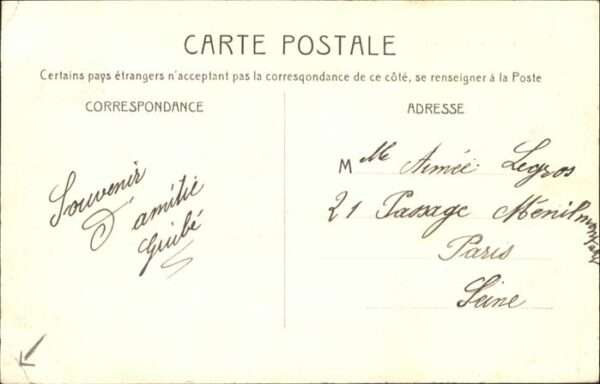 CARTE POSTALE
Certains pays étrangers n'acceptant pas la corresqondance de ce côté, se renseigner à la Poste
CORRESPONDANCE
Souvenir
D'amitié
Guibé
ADRESSE
M lle Aimée Legros
21 Passage Ménilmontant
Paris
Seine